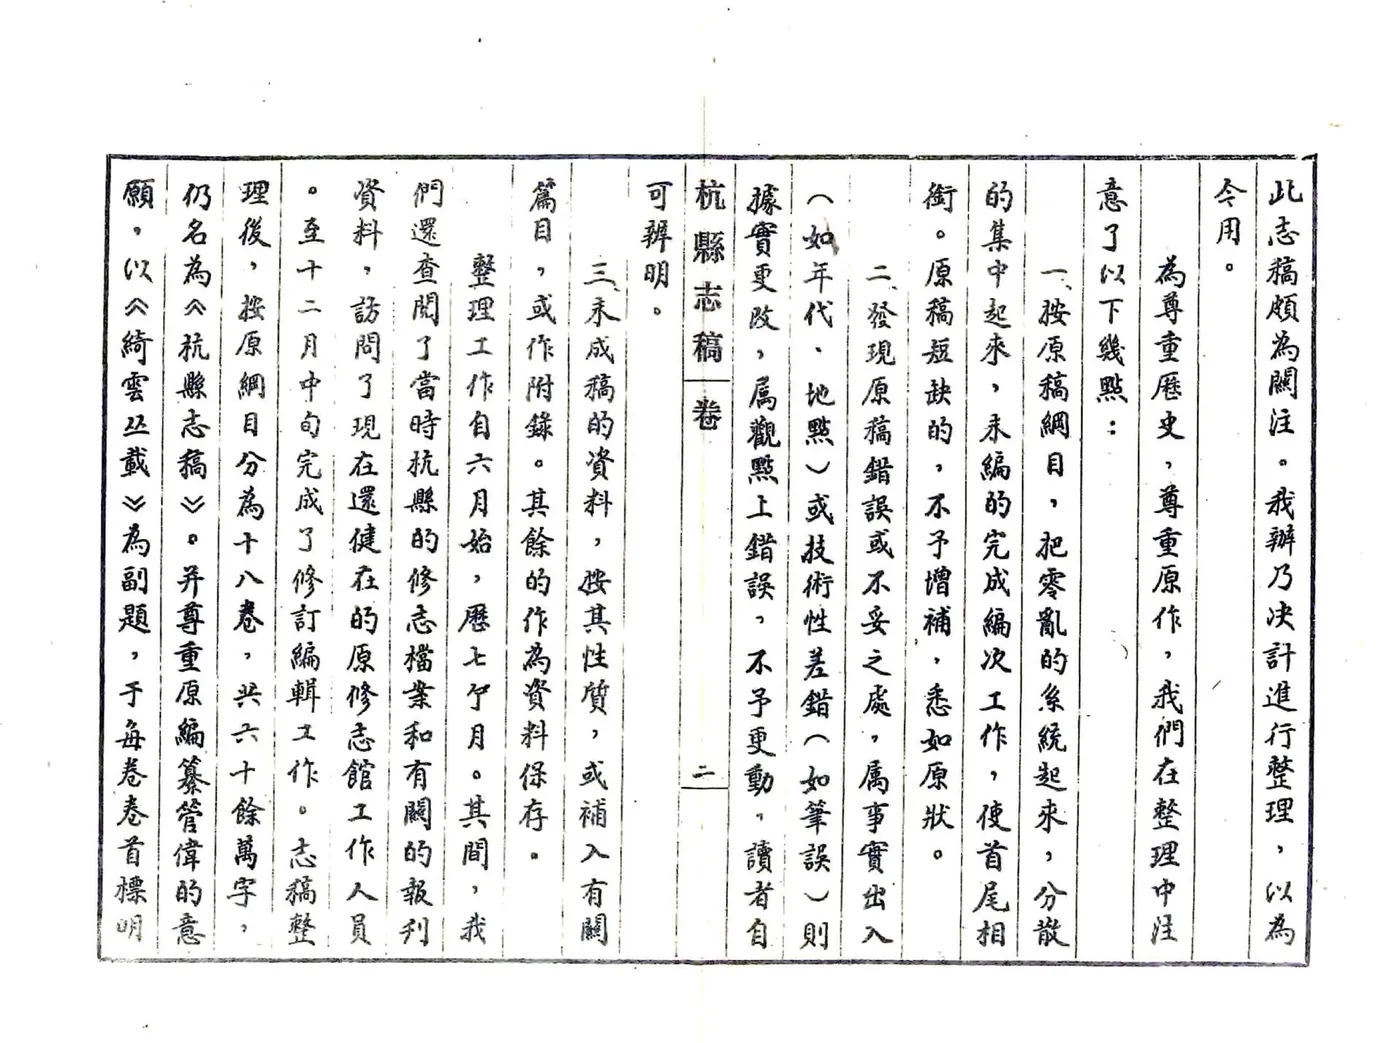 此志稿頗為關注。我辦乃决計進行整理，以為
今用。
為尊重歷史，尊重原作，我們在整理中注
意了以下幾點：
一、按原稿綱目，把零亂的系統起來，分散
的集中起來，未編的完成編次工作，使首尾相
銜。原稿短缺的，不予增補，悉如原狀。
二、發現原稿錯誤或不妥之處，属事實出入
（如年代、地點）或技術性差錯（如筆誤）則
據實更改，属觀點上錯誤，不予更動，讀者自
杭縣志稿 卷 二
可辨明。
三、未成稿的資料，按其性质，或補入有關
篇目，或作附錄。其餘的作為資料保存。
整理工作自六月始，歷七个月。其間，我
們還查閱了當時杭縣的修志檔案和有關的報刊
資料，訪問了現在還健在的原修志館工作人員
。至十二月中旬完成了修訂編輯工作。志稿整
理後，按原綱目分為十八卷，共六十餘萬字，
仍名為《杭縣志稿》。并尊重原編纂管偉的意
願，以《綺雲丛載》為副題，于每卷卷首標明